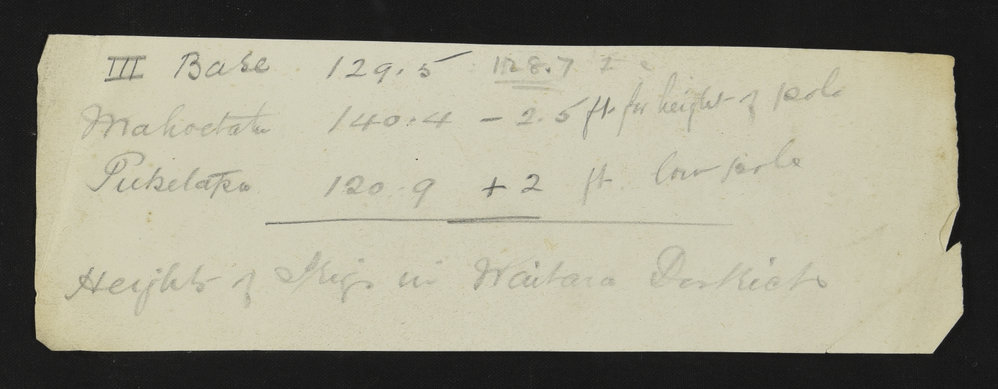 III Base 129.5 128.7
Mahoetahi 140.4 - 2.5 ft. for height of pole
Puketapu 120.9 + 2 ft low pole
Heights of Trigs in Waitara District